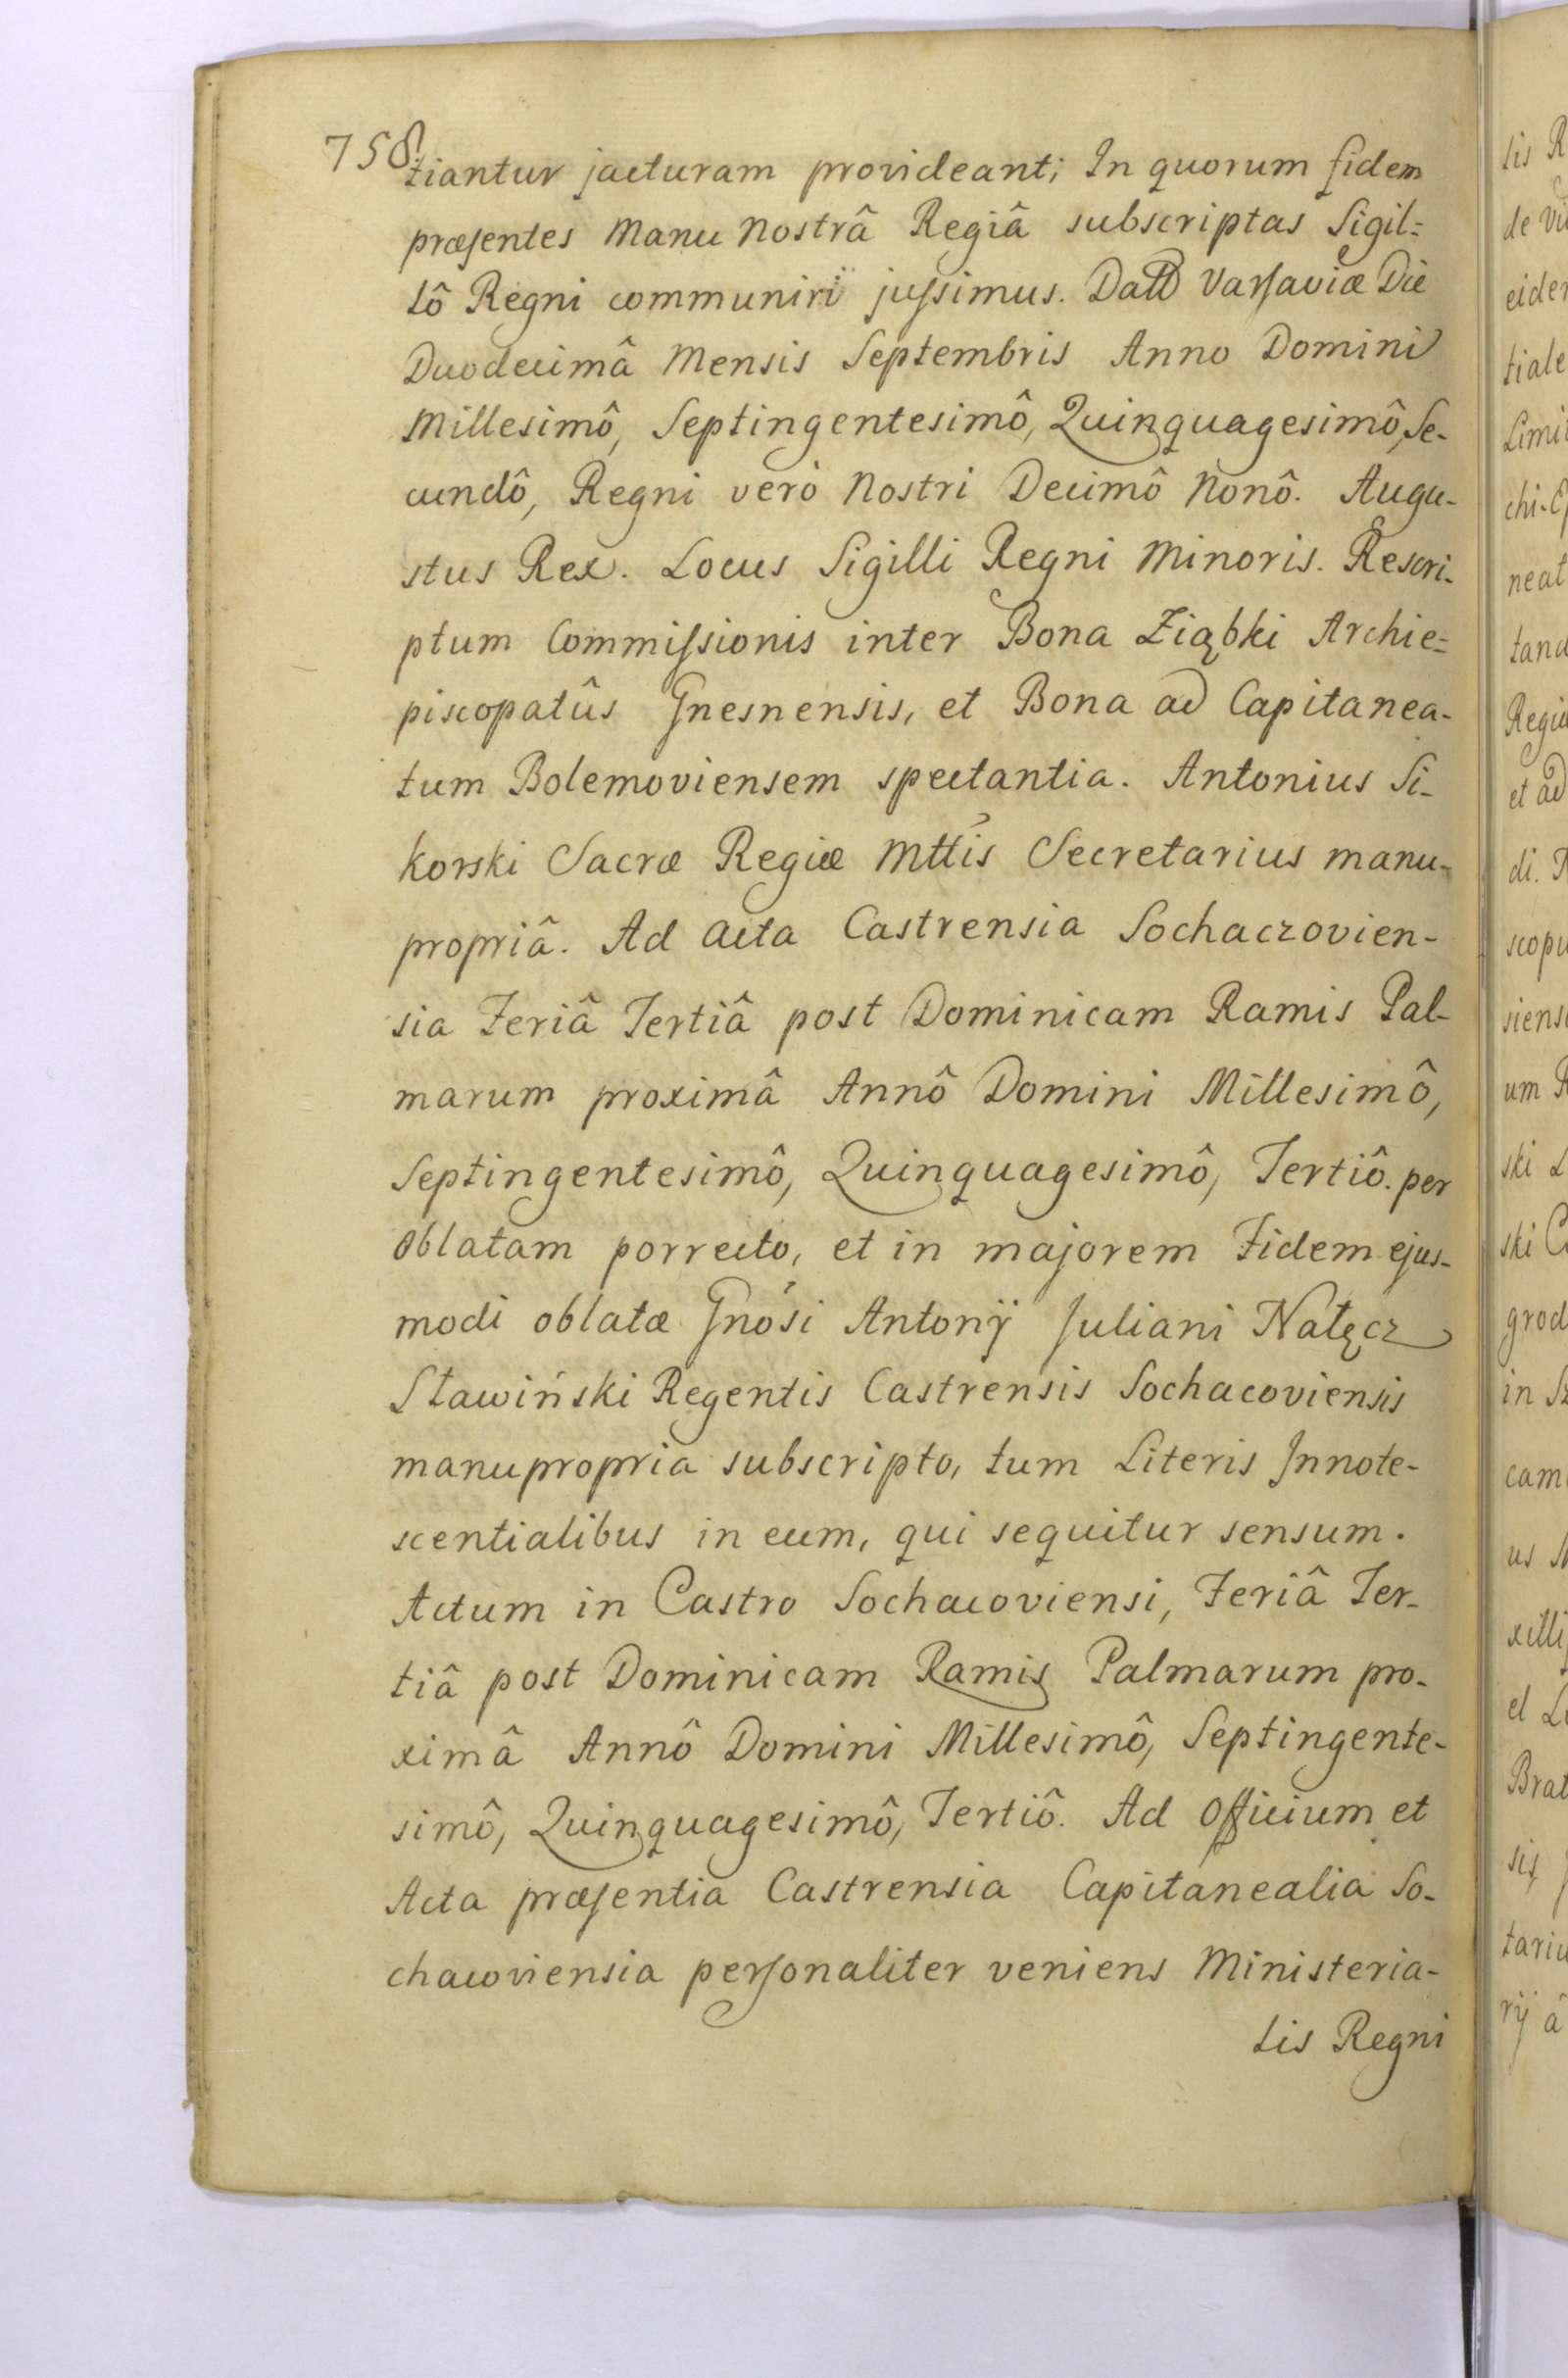 758
tiantur jacturam provideant; In quorum fidem
præsentes Manu Nostrâ Regiâ subscriptas Sigil=
lô Regni communiri jussimus. Datt Varsaviæ Die
Duodecimâ Mensis Septembris Anno Domini
Millesimô, Septingentesimô, Quinquagesimô, Se-
cundô, Regni verò Nostri Decimô Nonô. Augu-
stus Rex. Locus Sigilli Regni Minoris. Rescri-
ptum Commissionis inter Bona Ziąbki Archie=
piscopatûs Gnesnensis, et Bona ad Capitanea-
tum Bolemoviensem spectantia. Antonius Si-
korski Sacræ Regiæ Mttis Secretarius manu-
propriâ. Ad Acta Castrensia Sochaczovien-
sia Feriâ Tertiâ post Dominicam Ramis Pal-
marum proximâ Annô Domini Millesimô,
Septingentesimô, Quinquagesimô, Tertiô. per
Oblatam porrecto, et in majorem Fidem ejus-
modi oblatæ Gnosi Antonÿ Juliani Nałęcz
Sławiński Regentis Castrensis Sochacoviensis
manupropria subscripto, tum Literis Innote-
scentialibus in eum, qui sequitur sensum.
Actum in Castro Sochacoviensi, Feriâ Ter-
tiâ post Dominicam Ramis Palmarum pro-
ximâ Annô Domini Millesimô, Septingente-
simô, Quinquagesimô, Tertiô. Ad Officium et
Acta præsentia Castrensia Capitanealia So-
chacoviensia personaliter veniens Ministeria-
lis Regni